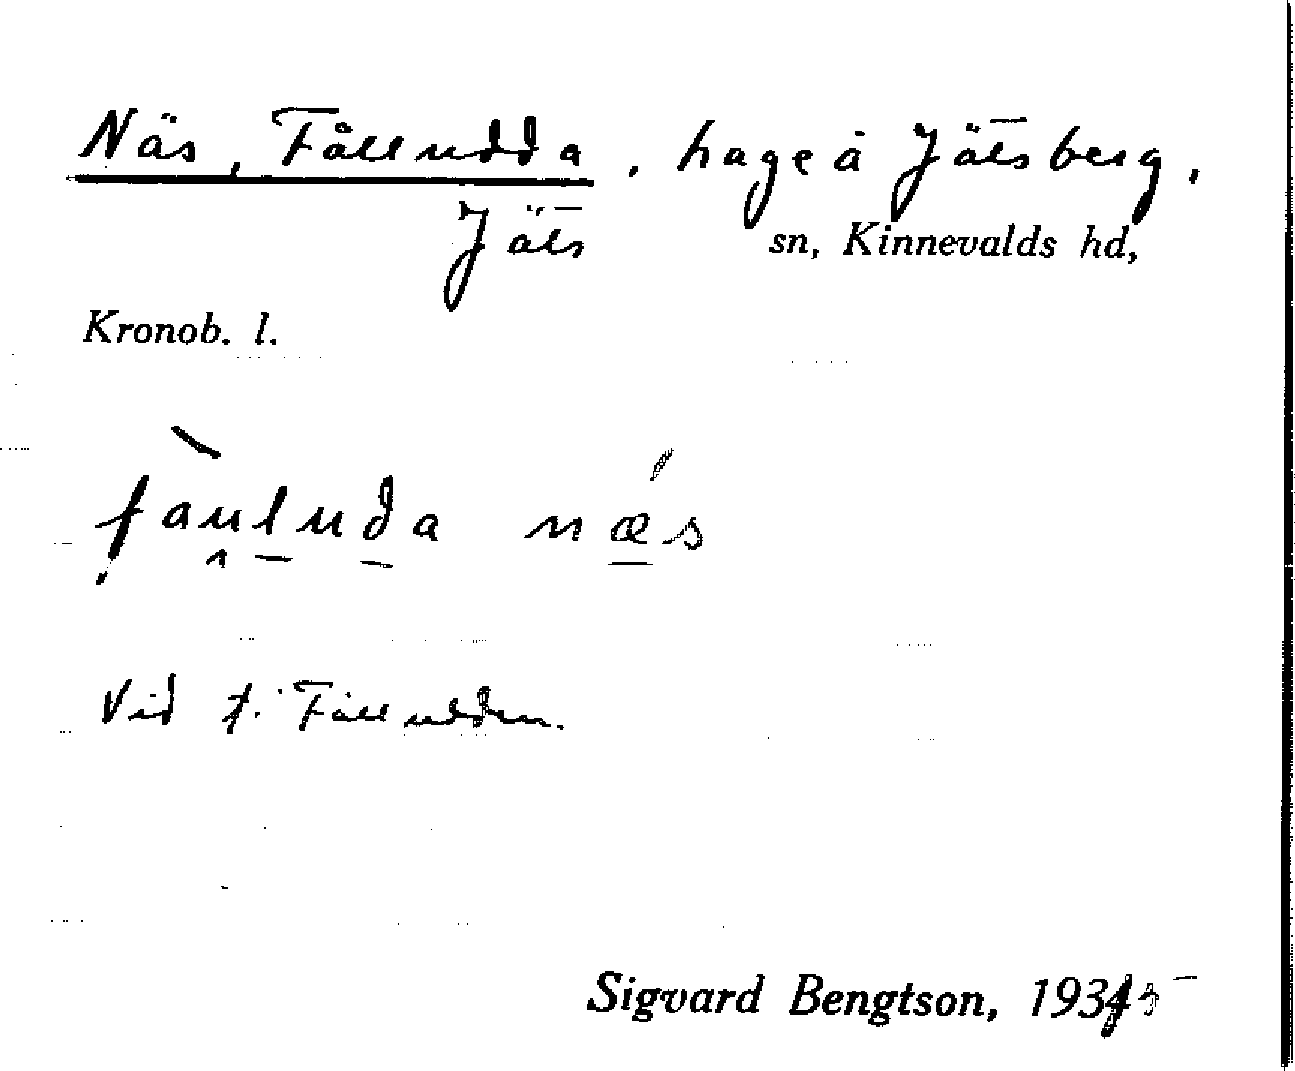 Näs, Fålludda, hage å Jätsberg,
Jäts sn, Kinnevalds hd,
Kronob. l.
fauluda næs
Vid f. Fålludden.
Sigvard Bengtson, 1935